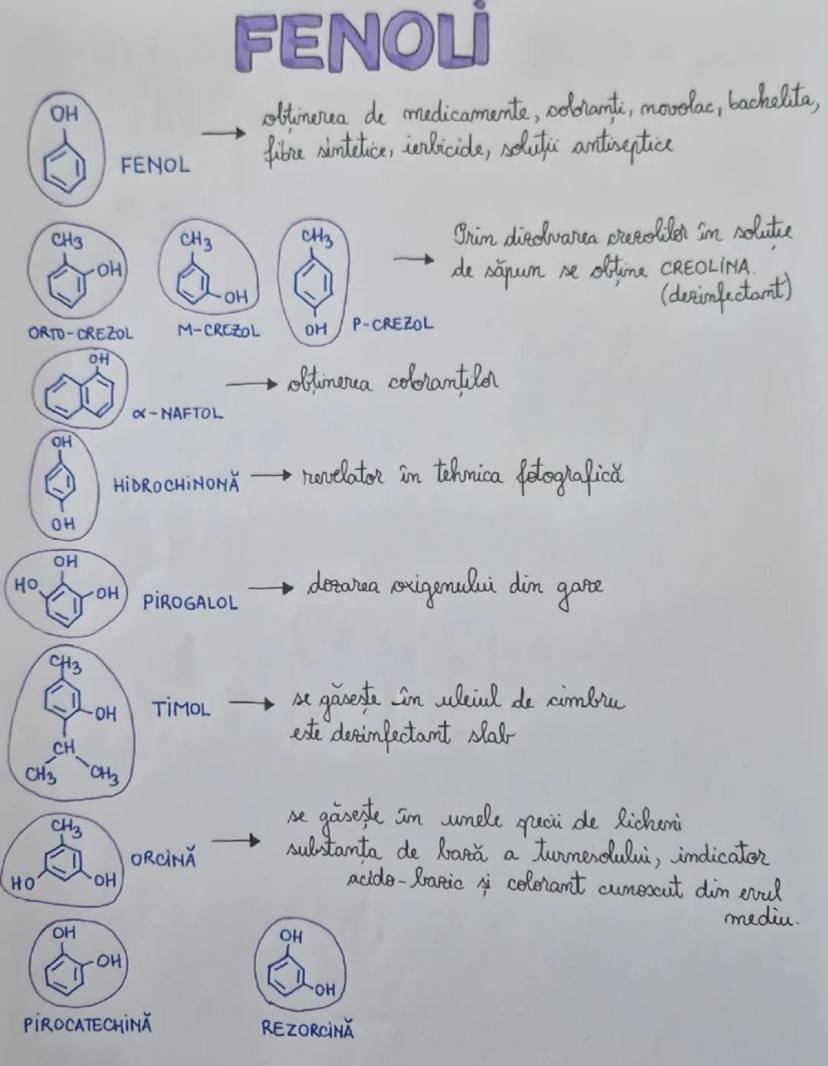 FENOLI
OH
FENOL
obținerea de medicamente, coloranți, novolac, bachelita,
fibre sintetice, ierbicide, soluții antiseptice
CH3
OH
ORTO-CREZOL
CH3
OH
M-CREZOL
CH3
OH
P-CREZOL
Prin dizolvarea crezolilor în soluție
de săpun se obține CREOLINA.
(dezinfectant)
OH
α-NAFTOL
obținerea coloranților
OH
OH
HIDROCHINONĂ
revelator în tehnica fotografică
OH
HO
OH
PIROGALOL
dozarea oxigenului din gaze
CH3
OH
CH
CH3
CH3
TIMOL
se găsește în uleiul de cimbru
este dezinfectant slab
CH3
HO
OH
ORCINĂ
se găsește în unele specii de licheni
substanța de bază a turnesolului, indicator
acido-bazic și colorant cunoscut din evul
mediu.
OH
OH
PIROCATECHINĂ
OH
OH
REZORCINĂ